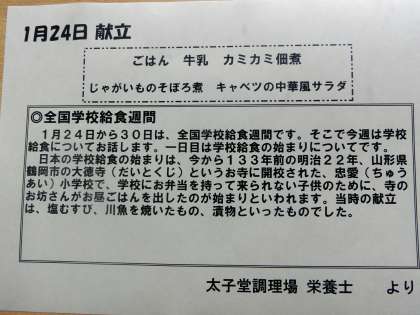 1月24日 献立
ごはん 牛乳 カミカミ佃煮
じゃがいものそぼろ煮 キャベツの中華風サラダ
◎全国学校給食週間
1月24日から30日は、全国学校給食週間です。そこで今週は学校
給食についてお話します。一日目は学校給食の始まりについてです。
日本の学校給食の始まりは、今から133年前の明治22年、山形県
鶴岡市の大徳寺（だいとくじ）というお寺に開校された、忠愛（ちゅう
あい）小学校で、学校にお弁当を持って来られない子供のために、寺の
お坊さんがお昼ごはんを出したのが始まりといわれます。当時の献立
は、塩むすび、川魚を焼いたもの、漬物といったものでした。
太子堂調理場 栄養士 より